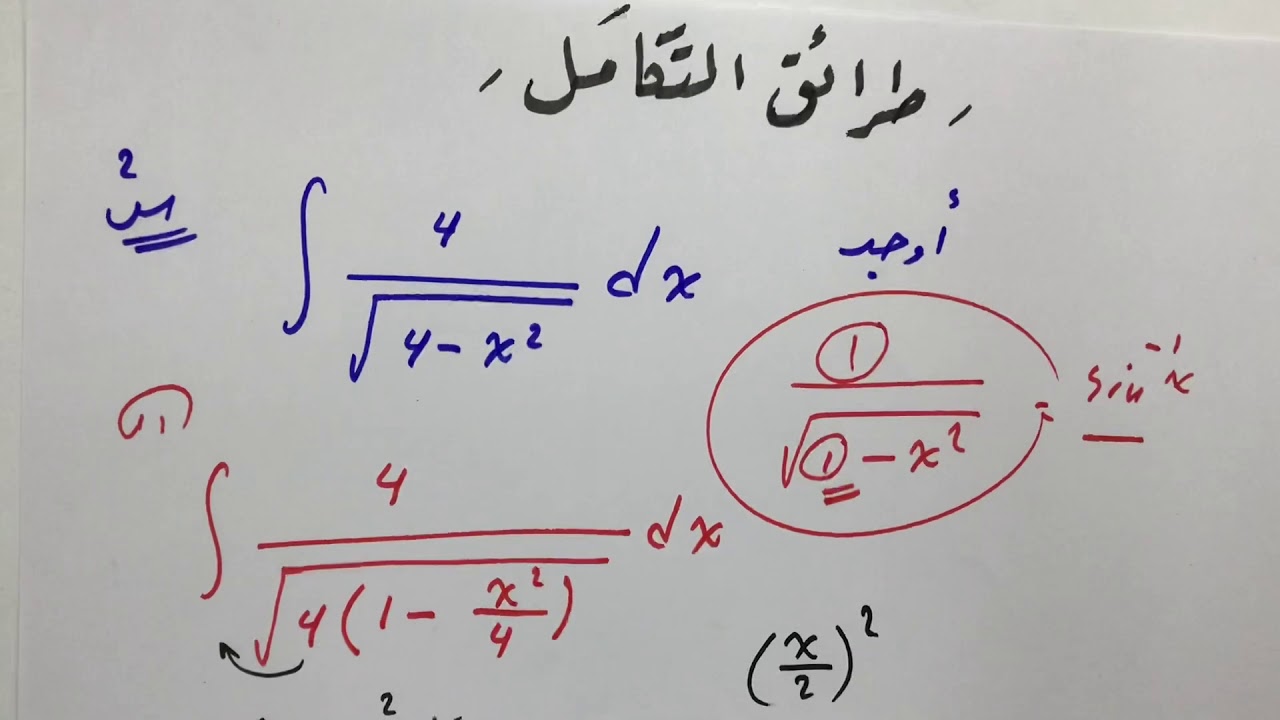 طرائق التكامَل
س2
أوجد
∫ 4/√(4 - x²) dx
1/√(1 - x²) = sin⁻¹ x
∫ 4/√(4(1 - x²/4)) dx
(x/2)²
2